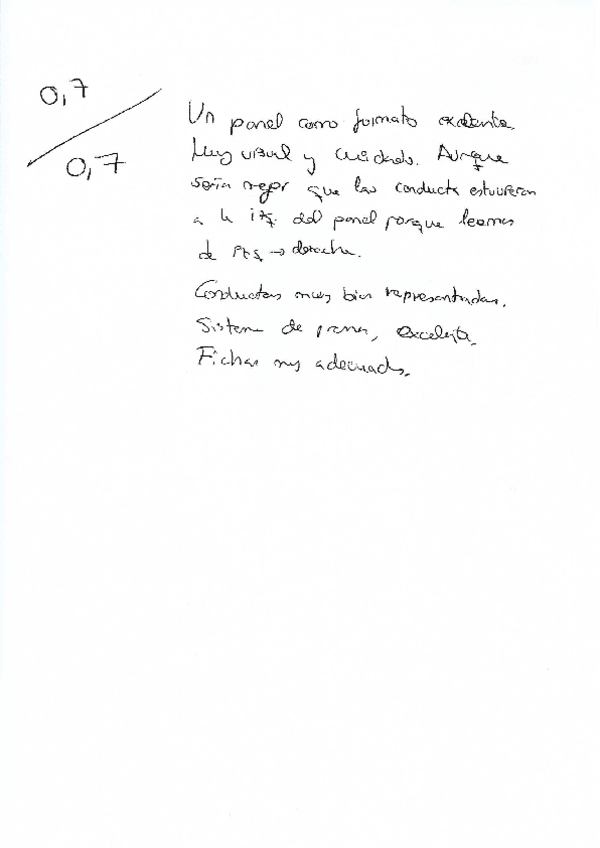 0,7
0,7
Un panel como formato excelente.
Muy visual y cuidado. Aunque
sería mejor que las conductas estuvieran
a la izq. del panel porque leemos
de izq → derecha.
Conductas muy bien representadas.
Sistema de , excelente.
Fichas muy adecuadas.